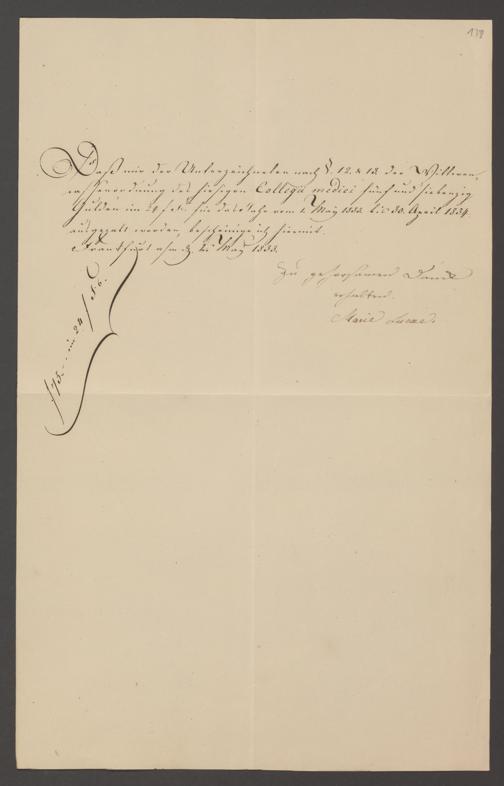 139
Daß mir der Unterzeichneten nach §. 12. & 13. der Wittwen-
cassenordnung des hiesigen Collegii medici fünf und siebenzig
Gulden im 24 f. f. für das Jahr vom 1. May 1833. bis 30. April 1834.
ausgezalt worden, bescheinige ich hiermit.
Frankfurt a/m d. May 1833.
f 75. -- im 24 f. f.
Zu gehorsamen Danck
erhalten.
Marie Lucae.